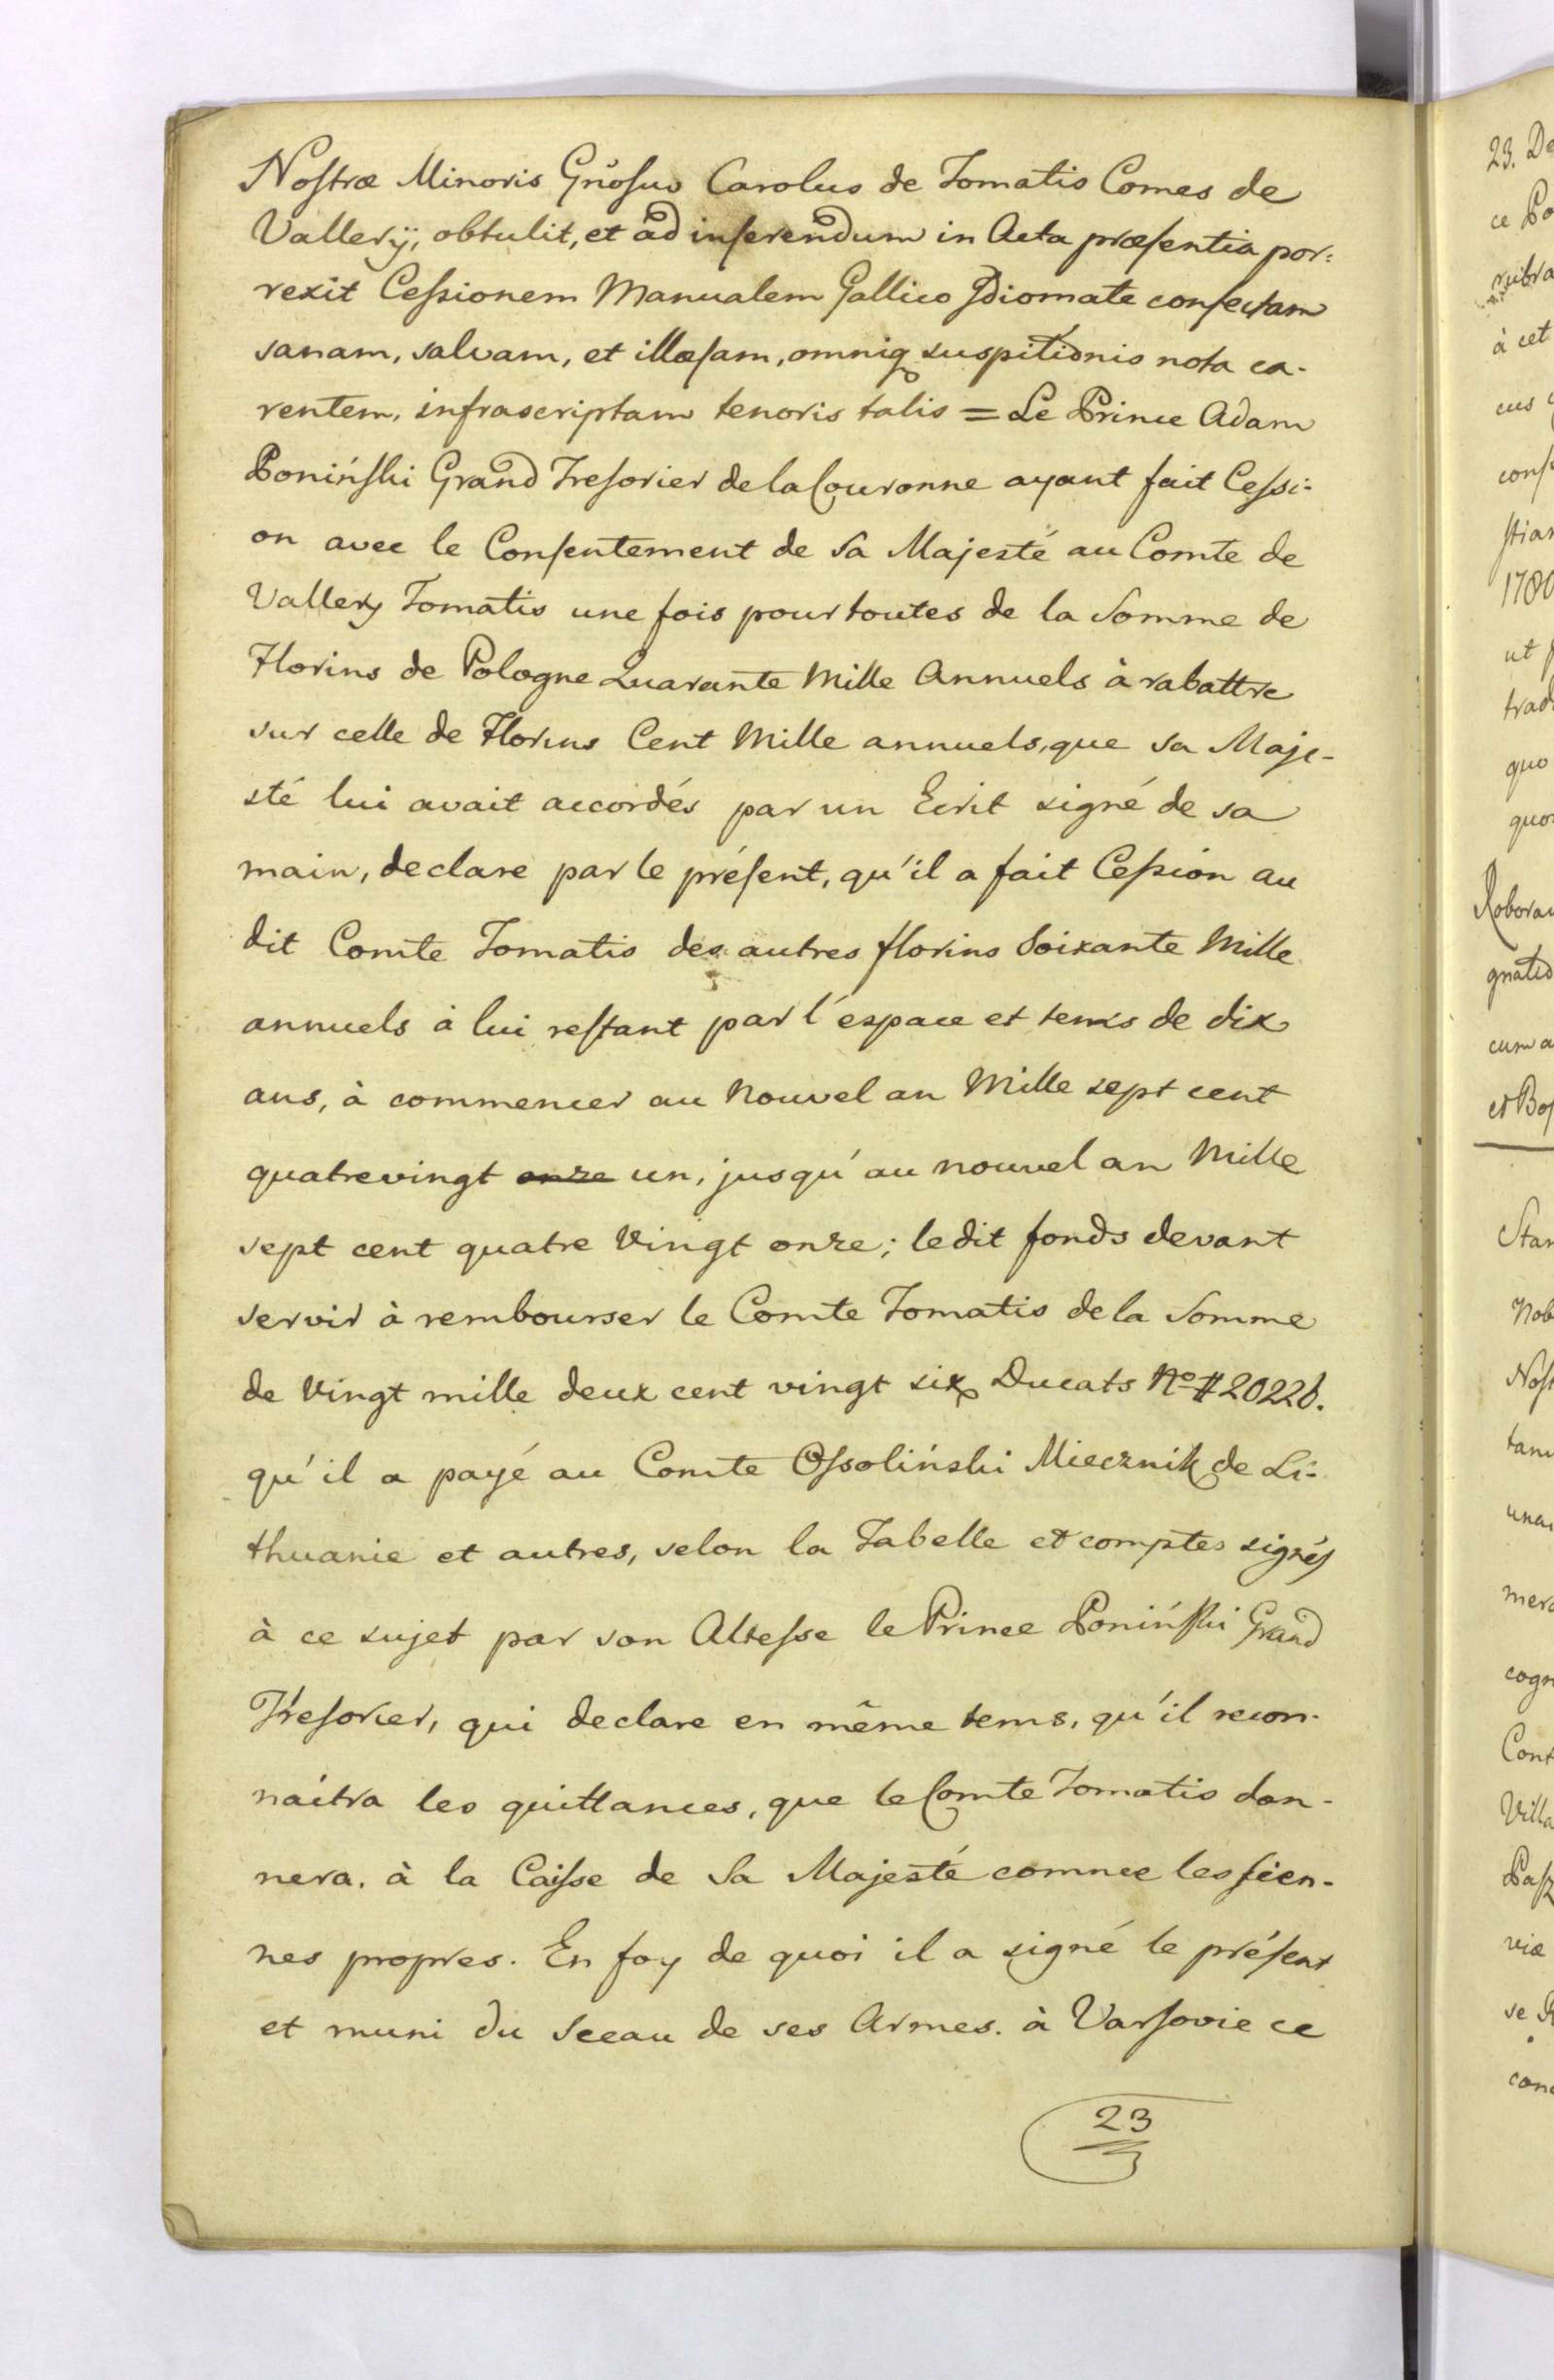 Nostræ Minoris Gn̄osus Carolus de Tomatis Comes de
Vallerÿ, obtulit, et ad inserendum in Acta præsentia por:
rexit Cessionem Manualem Gallico Idiomate confectam
sanam, salvam, et illæsam, omniq suspitionis nota ca-
rentem, infrascriptam tenoris talis = Le Prince Adam
Poniński Grand Tresorier de la Couronne ayant fait Cessi-
on avec le Consentement de Sa Majesté au Comte de
Vallery Tomatis une fois pour toutes de la Somme de
Florins de Pologne Quarante Mille Annuels à rabattre
sur celle de Florins Cent Mille annuels, que sa Maje-
sté lui avait accordés par un Ecrit signé de sa
main, declare par le présent, qu'il a fait Cession au
dit Comte Tomatis des autres florins Soixante Mille
annuels à lui restant par l'espace et tems de dix
ans, à commencer au Nouvel an Mille sept cent
quatrevingt onze un, jusqu'au nouvel an Mille
sept cent quatre Vingt onze; ledit fonds devant
servir à rembourser le Comte Tomatis de la Somme
de Vingt mille deux cent vingt six Ducats No # 20226.
qu'il a payé au Comte Ossoliński Miecznik de Li-
thuanie et autres, selon la Tabelle et comptes signés
à ce sujet par son Altesse le Prince Poniński Grand
Trésorier, qui declare en même tems, qu'il recon-
naitra les quittances, que le Comte Tomatis don-
nera, à la Caisse de Sa Majesté comme les sien-
nes propres. En foy de quoi il a signé le présent
et muni du Sceau de ses Armes. à Varsovie ce
23
23. De
ce Po
rubra
à cet
cus
cons
stian
1780
ut p
trad
quo
quo
Roborau
gnatio
cum a
et Bo
Stan
Nob
Nost
tam
una
mer
cogn
Cont
Villa
Pasz
viæ
se
conc